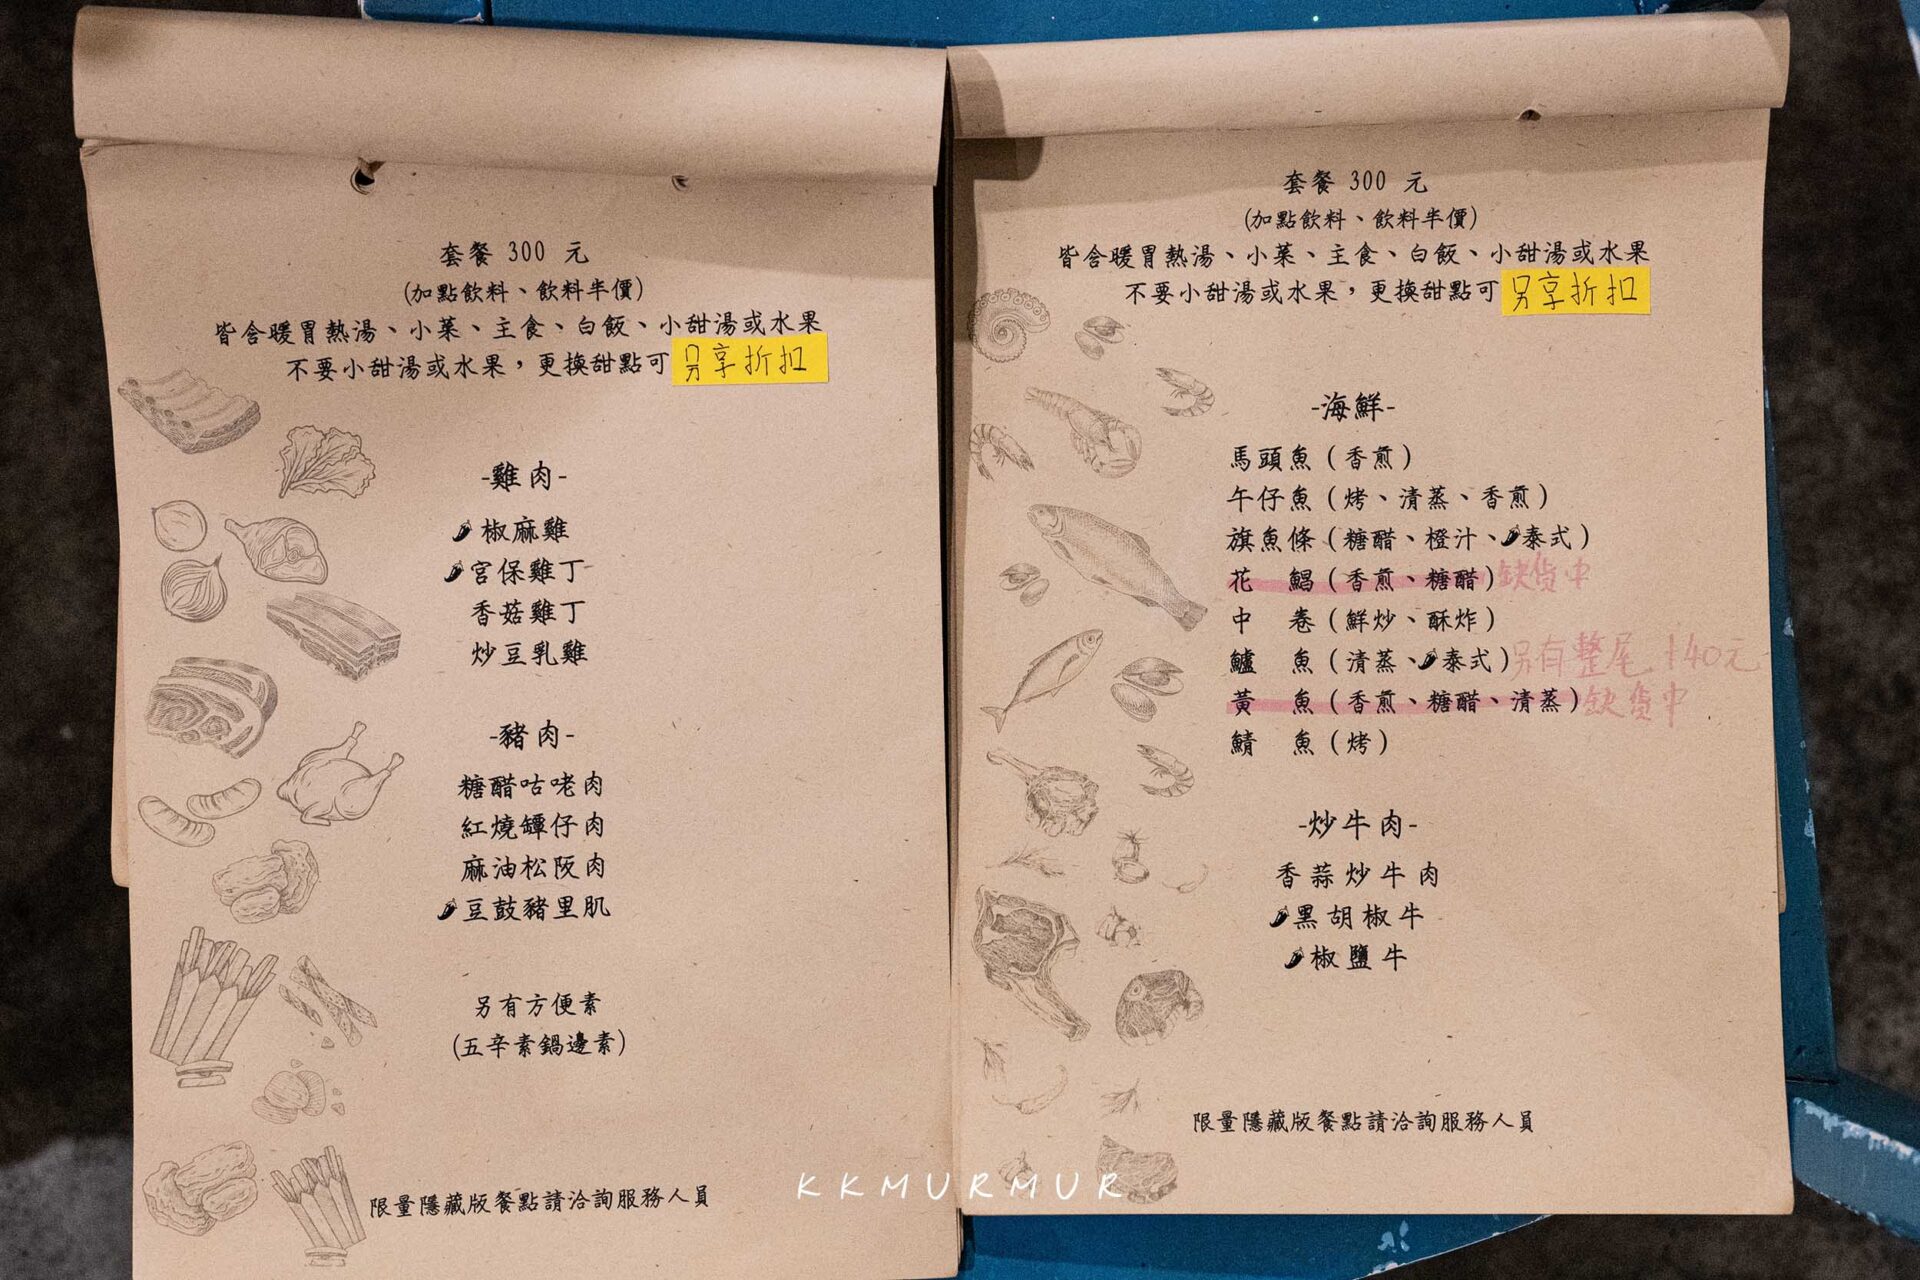 套餐 300 元
(加點飲料、飲料半價)
皆含暖胃熱湯、小菜、主食、白飯、小甜湯或水果
不要小甜湯或水果，更換甜點可另享折扣
-雞肉-
椒麻雞
宮保雞丁
香菇雞丁
炒豆乳雞
-豬肉-
糖醋咕咾肉
紅燒罈仔肉
麻油松阪肉
豆鼓豬里肌
另有方便素
(五辛素鍋邊素)
限量隱藏版餐點請洽詢服務人員
套餐 300 元
(加點飲料、飲料半價)
皆含暖胃熱湯、小菜、主食、白飯、小甜湯或水果
不要小甜湯或水果，更換甜點可另享折扣
-海鮮-
馬頭魚（香煎）
午仔魚（烤、清蒸、香煎）
旗魚條（糖醋、橙汁、泰式）
花 鯧（香煎、糖醋）缺貨中
中 卷（鮮炒、酥炸）
鱸 魚（清蒸、泰式）另有整尾 140元
黃 魚（香煎、糖醋、清蒸）缺貨中
鯖 魚（烤）
-炒牛肉-
香蒜炒牛肉
黑胡椒牛
椒鹽牛
限量隱藏版餐點請洽詢服務人員
KKMURMUR